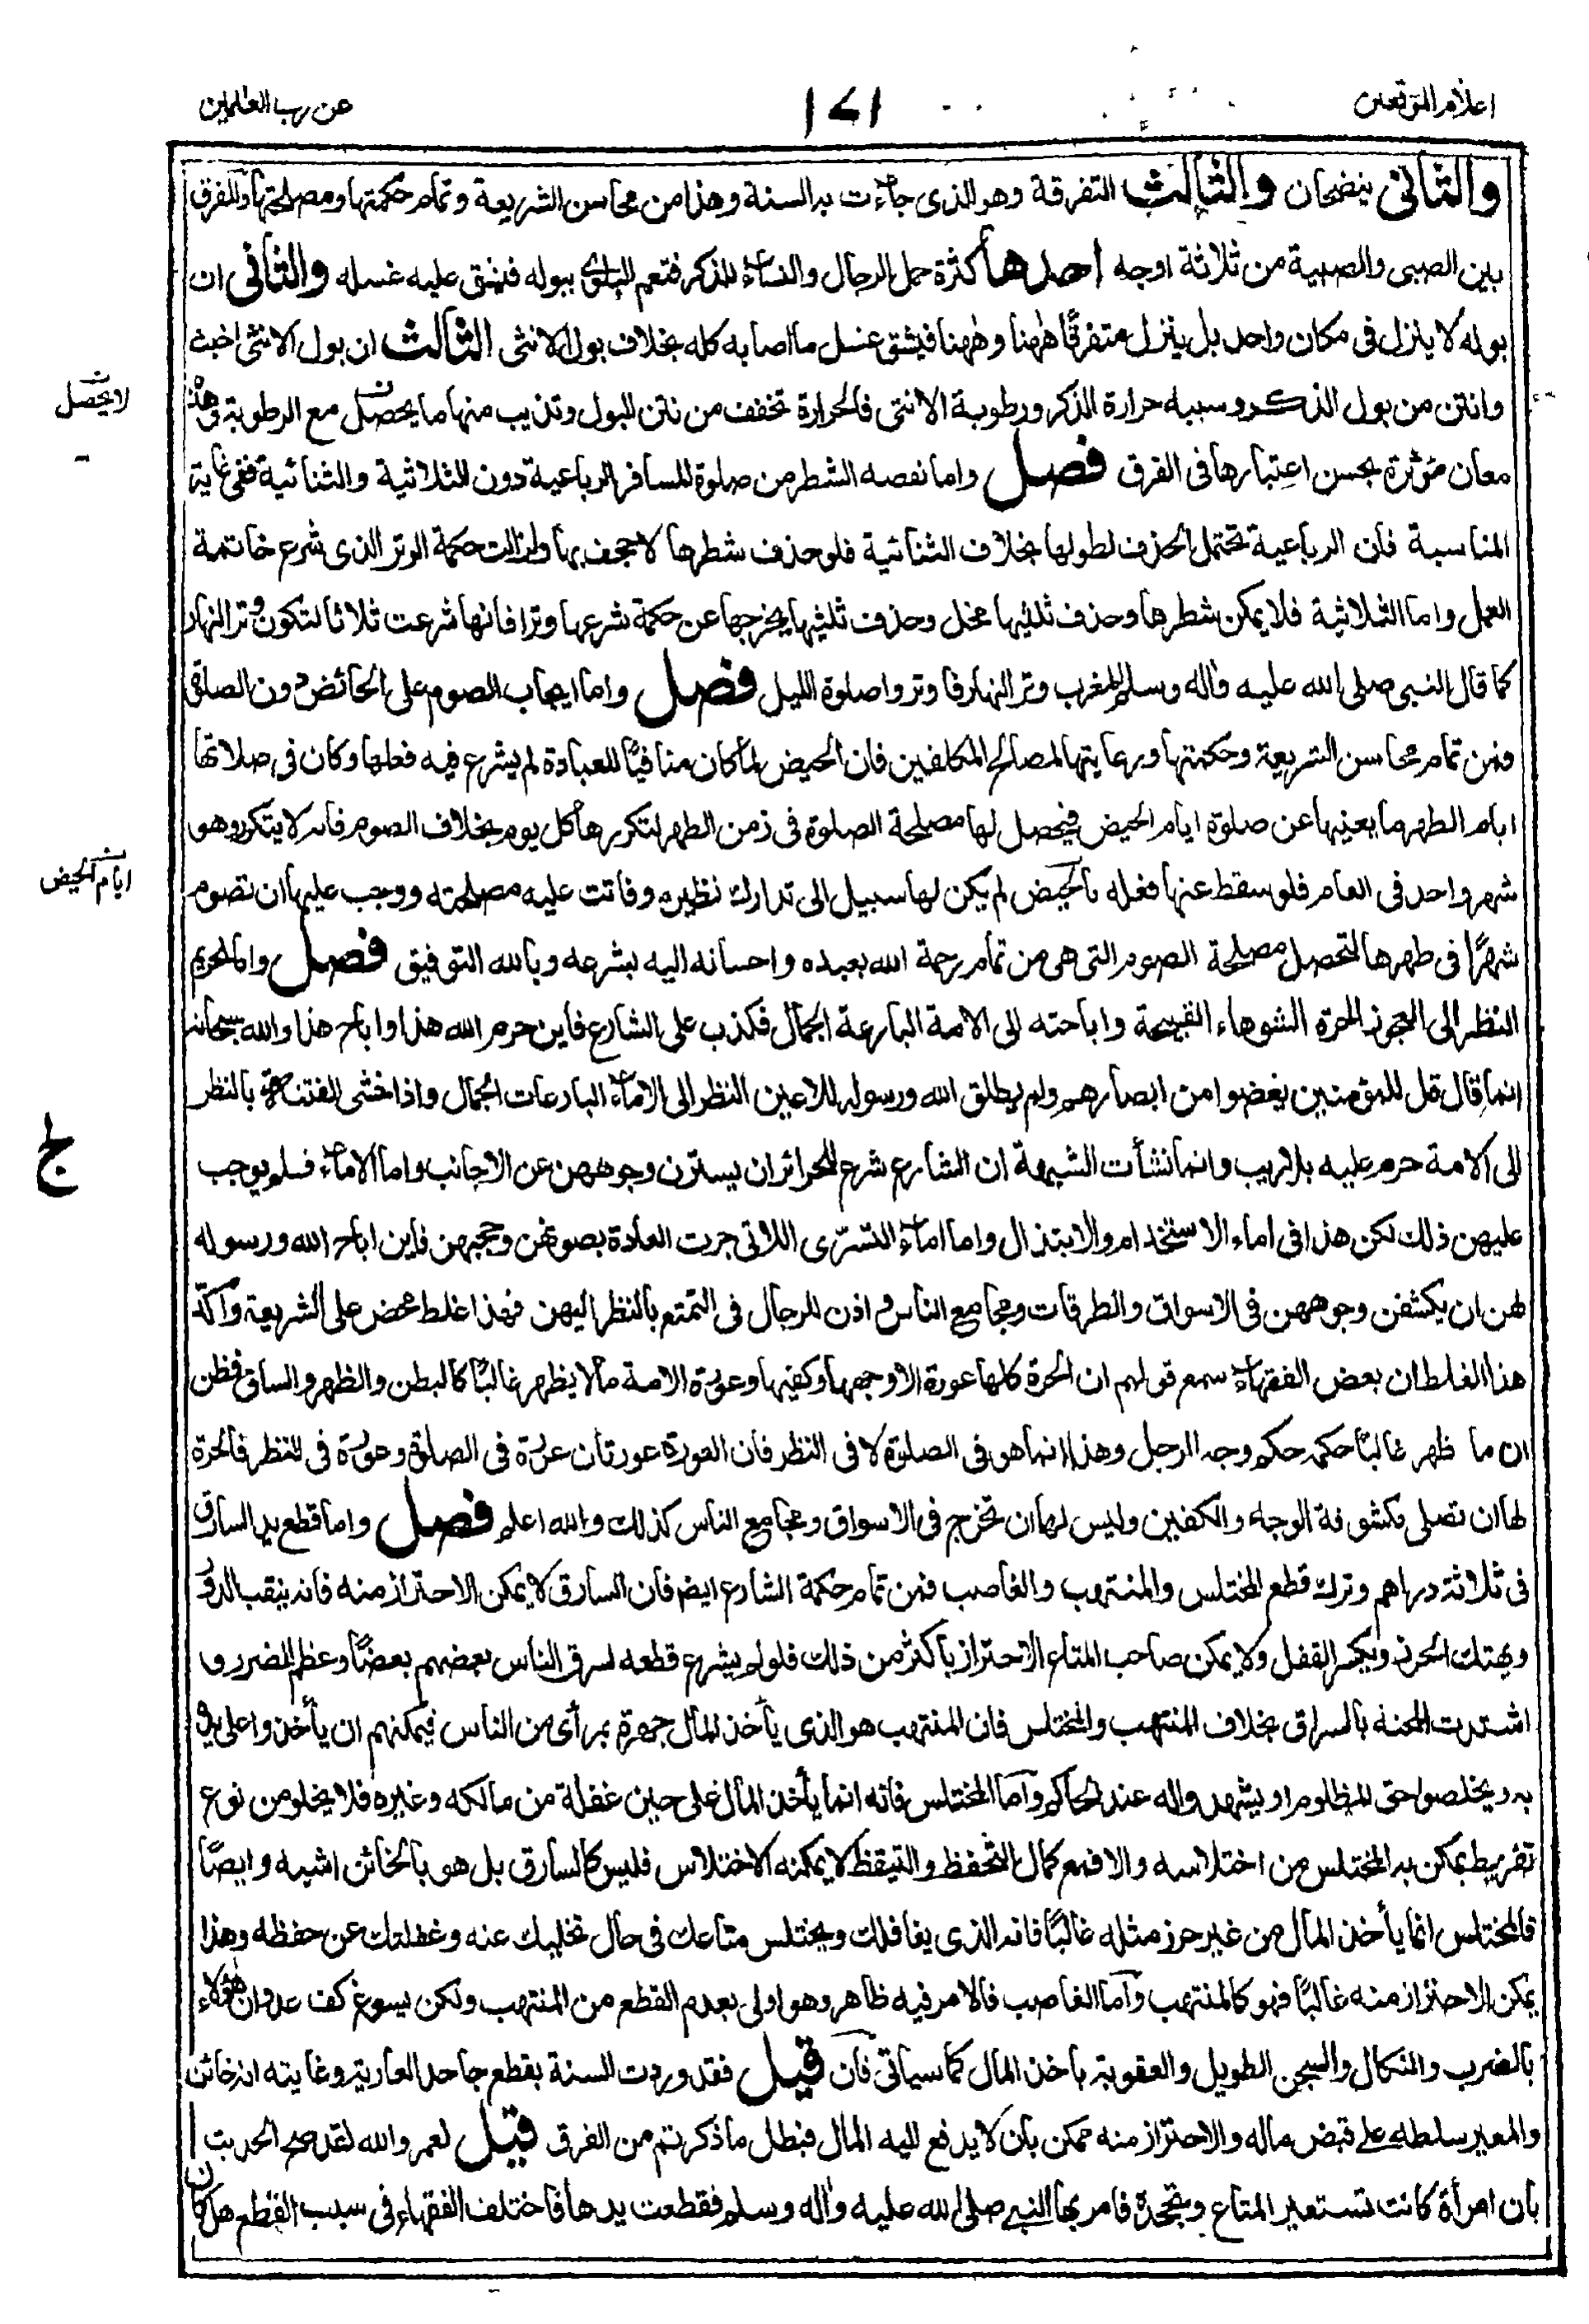 اعلام الموقعين
١٧١
عن رب العلمين
والثانى ينضحان والثالث التفرقة وهو الذى جاءت به السنة وهذا من محاسن الشريعة وتمام حكمتها ومصلحتها والفرق
بين الصبى والصبية من ثلاثة اوجه احدها كثرة حمل الرجال والنساء للذكر فتعم البلوى ببوله فيشق عليه غسله والثانى ان
بوله لا ينزل فى مكان واحد بل ينزل متفرقًا ههنا وههنا فيشق غسل ما اصابه كله بخلاف بول الانثى الثالث ان بول الانثى اخبث
وانتن من بول الذكر وسببه حرارة الذكر ورطوبة الانثى فالحرارة تخفف من نتن البول وتذيب منها ما يحصل مع الرطوبة وهذه
لا يحصل
معان مؤثرة يحسن اعتبارها فى الفرق فصل واما نقصه الشطر من صلوة المسافر الرباعية دون الثلاثية والثنائية ففى غاية
المناسبة فان الرباعية تحتمل الحذف لطولها بخلاف الثنائية فلو حذف شطرها لاجحف بها ولزالت حكمة الوتر الذى شرع خاتمة
العمل واما الثلاثية فلا يمكن شطرها وحذف ثلثيها مخل وحذف ثلثها يخرجها عن حكمة شرعها وترا فانها شرعت ثلاثا لتكون وتر النهار
كما قال النبى صلى الله عليه وآله وسلم المغرب وتر النهار فاوتروا صلوة الليل فصل واما ايجاب الصوم على الحائض دون الصلوة
فمن تمام محاسن الشريعة وحكمتها ورعايتها لمصالح المكلفين فان الحيض لما كان منافيًا للعبادة لم يشرع فيه فعلها وكان فى صلاتها
ايام الطهر ما يغنيها عن صلوة ايام الحيض فيحصل لها مصلحة الصلوة فى زمن الطهر لتكررها كل يوم بخلاف الصوم فانه لا يتكرر وهو
ايام الحيض
شهر واحد فى العام فلو سقط عنها فعله بالحيض لم يكن لها سبيل الى تدارك نظيره وفاتت عليه مصلحته ووجب عليها ان تصوم
شهرًا فى طهرها لتحصل مصلحة الصوم التى هى من تمام رحمة الله بعبده واحسانه اليه بشرعه وبالله التوفيق فصل واما تحريم
النظر الى العجوز الحرة الشوهاء القبيحة واباحته الى الامة البارعة الجمال فكذب على الشارع فاين حرم الله هذا واباح هذا والله سبحانه
انما قال قل للمؤمنين يغضوا من ابصارهم ولم يطلق الله ورسوله للاعين النظر الى الاماء البارعات الجمال واذا خشى الفتنة بالنظر
ج
الى الامة حرم عليه بلا ريب وانما نشأت الشبهة ان الشارع شرع للحرائر ان يسترن وجوههن عن الاجانب واما الاماء فلم يوجب
عليهن ذلك لكن هذا فى اماء الاستخدام والابتذال واما اماء التسرّى اللاتى جرت العادة بصونهن وحجبهن فاين اباح الله ورسوله
لهن ان يكشفن وجوههن فى الاسواق والطرقات ومجامع الناس واذن للرجال فى التمتع بالنظر اليهن فهذا غلط محض على الشريعة واكّد
هذا الغلط ان بعض الفقهاء سمع قولهم ان الحرة كلها عورة الا وجهها وكفيها وعورة الامة ما لا يظهر غالبًا كالبطن والظهر والساق فظن
ان ما يظهر غالبًا حكمه حكم وجه الرجل وهذا انما هو فى الصلوة لا فى النظر فان العورة عورتان عورة فى الصلوة وعورة فى النظر فالحرة
لها ان تصلى مكشوفة الوجه والكفين وليس لها ان تخرج فى الاسواق ومجامع الناس كذلك والله اعلم فصل واما قطع يد السارق
فى ثلاثة دراهم وترك قطع المختلس والمنتهب والغاصب فمن تمام حكمة الشارع ايضا فان السارق لا يمكن الاحتراز منه فانه ينقب الدور
ويهتك الحرز ويكسر القفل ولا يمكن صاحب المتاع الاحتراز باكثر من ذلك فلو لم يشرع قطعه لسرق الناس بعضهم بعضًا وعظم الضرر و
اشتدت المحنة بالسراق بخلاف المنتهب والمختلس فان المنتهب هو الذى يأخذ المال جهرة بمرأى من الناس فيمكنهم ان يأخذوا على يديه
به ويخلصوا حق المظلوم او يشهدوا له عند الحاكم واما المختلس فانه انما يأخذ المال على حين غفلة من مالكه وغيره فلا يخلو من نوع
تفريط يمكن به المختلس من اختلاسه والا فمع كمال التحفظ والتيقظ لا يمكنه الاختلاس فليس كالسارق بل هو بالخائن اشبه وايضًا
فالمختلس انما يأخذ المال من غير حرز مثله غالبًا فانه الذى يغافلك ويختلس متاعك فى حال تخليك عنه وغفلتك عن حفظه وهذا
يمكن الاحتراز منه غالبًا فهو كالمنتهب واما الغاصب فالامر فيه ظاهر وهو اولى بعدم القطع من المنتهب ولكن يسوغ كف عدوان هؤلاء
بالضرب والنكال والسجن الطويل والعقوبة باخذ المال كما سياتى فان قيل فقد وردت السنة بقطع جاحد العارية وغايته انه خائن
والمعير سلطه على قبض ماله والاحتراز منه ممكن بان لا يدفع اليه المال فبطل ما ذكرتم من الفرق قيل لعمر والله لقد صح الحديث
بان امرأة كانت تستعير المتاع وتجحده فامر بها النبى صلى الله عليه وآله وسلم فقطعت يدها فاختلف الفقهاء فى سبب القطع هل كان